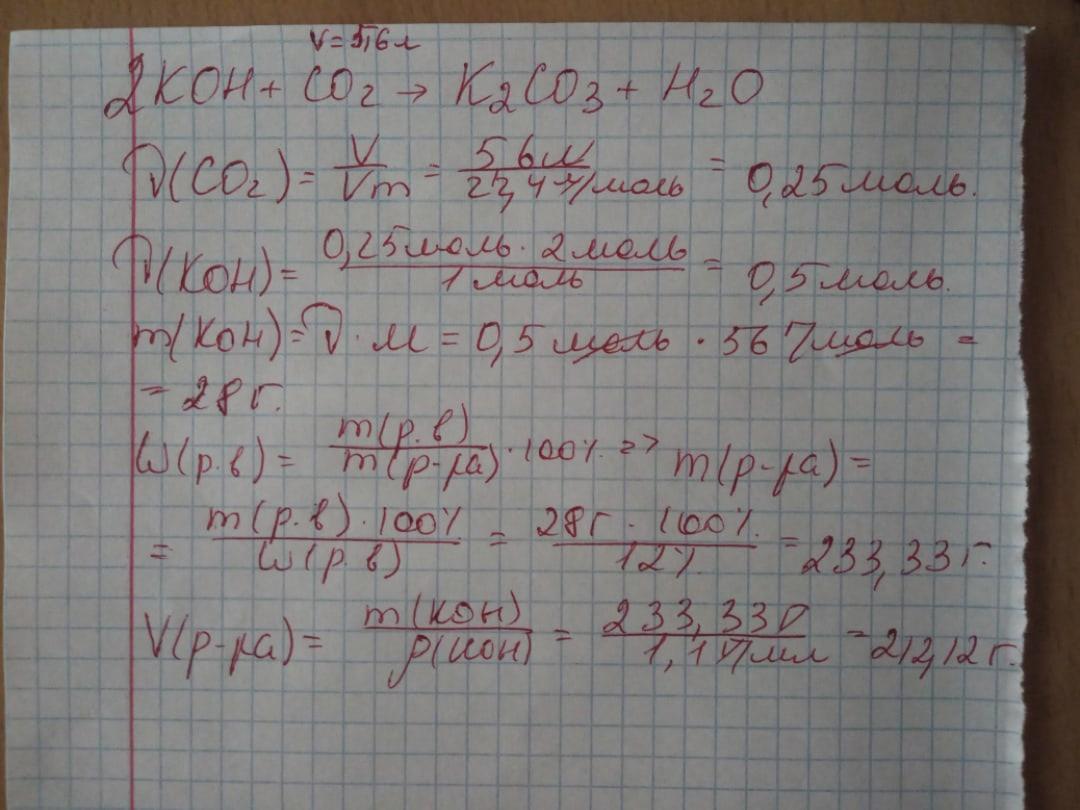 V=5,6л
2KOH + CO2 → K2CO3 + H2O
ν(CO2) = V/Vm = 56л/22,4 л/моль = 0,25 моль.
ν(KOH) = 0,25 моль · 2 моль/1 моль = 0,5 моль.
m(KOH) = ν · M = 0,5 моль · 56 г/моль =
= 28 г.
W(р.в) = m(р.в)/m(р-ра) · 100% => m(р-ра) =
= m(р.в) · 100%/W(р.в) = 28г · 100%/12% = 233,33 г.
V(р-ра) = m(KOH)/ρ(KOH) = 233,33 /1,1 г/мл = 212,12 г.